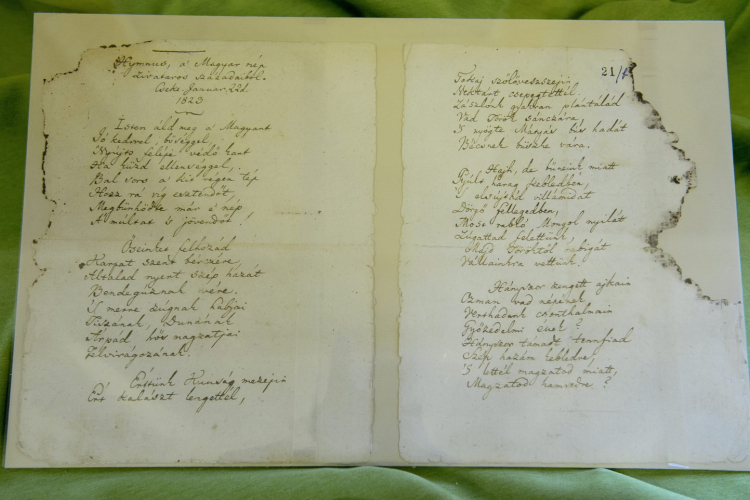 Hymnus, a' Magyar nép
zivataros századaiból.
Cseke Januar. 22d
1823
Isten áldd meg a' Magyart
Jó kedvvel, bőséggel,
Nyújts feléje védő kart
Ha küzd ellenséggel,
Bal sors a' kit régen tép
Hozz rá víg esztendőt,
Megbűnhődte már e' nép
A' múltat 's jövendőt!
Őseinket felhozád
Kárpát szent bérczére,
Általad nyert szép hazát
Bendegúznak vére.
'S merre zúgnak habjai
Tiszának, Dunának
Árpád hős magzatjai
Felvirágozának.
Értünk Kunság mezején
Ért kalászt lengettél,
21/
Tokaj szőlővesszejin
Nektárt csepegtettél.
Zászlónk gyakran plántálád
Vad Török sánczára,
'S nyögte Mátyás bús hadát
Bécsnek büszke vára.
Hajh, de bűneink miatt
Gyúlt harag kebledben,
'S elsújtád villámidat
Dörgő fellegedben,
Most rabló Mongol nyilát
Zúgattad felettünk,
Majd Töröktől rabigát
Vállainkra vettünk.
Hányszor zengett ajkain
Ozman vad népének
Vert hadunk csonthalmain
Győzedelmi ének?
Hányszor támadt tenfiad
Szép hazám kebledre,
'S lettél magzatod miatt,
Magzatod hamvvedre?